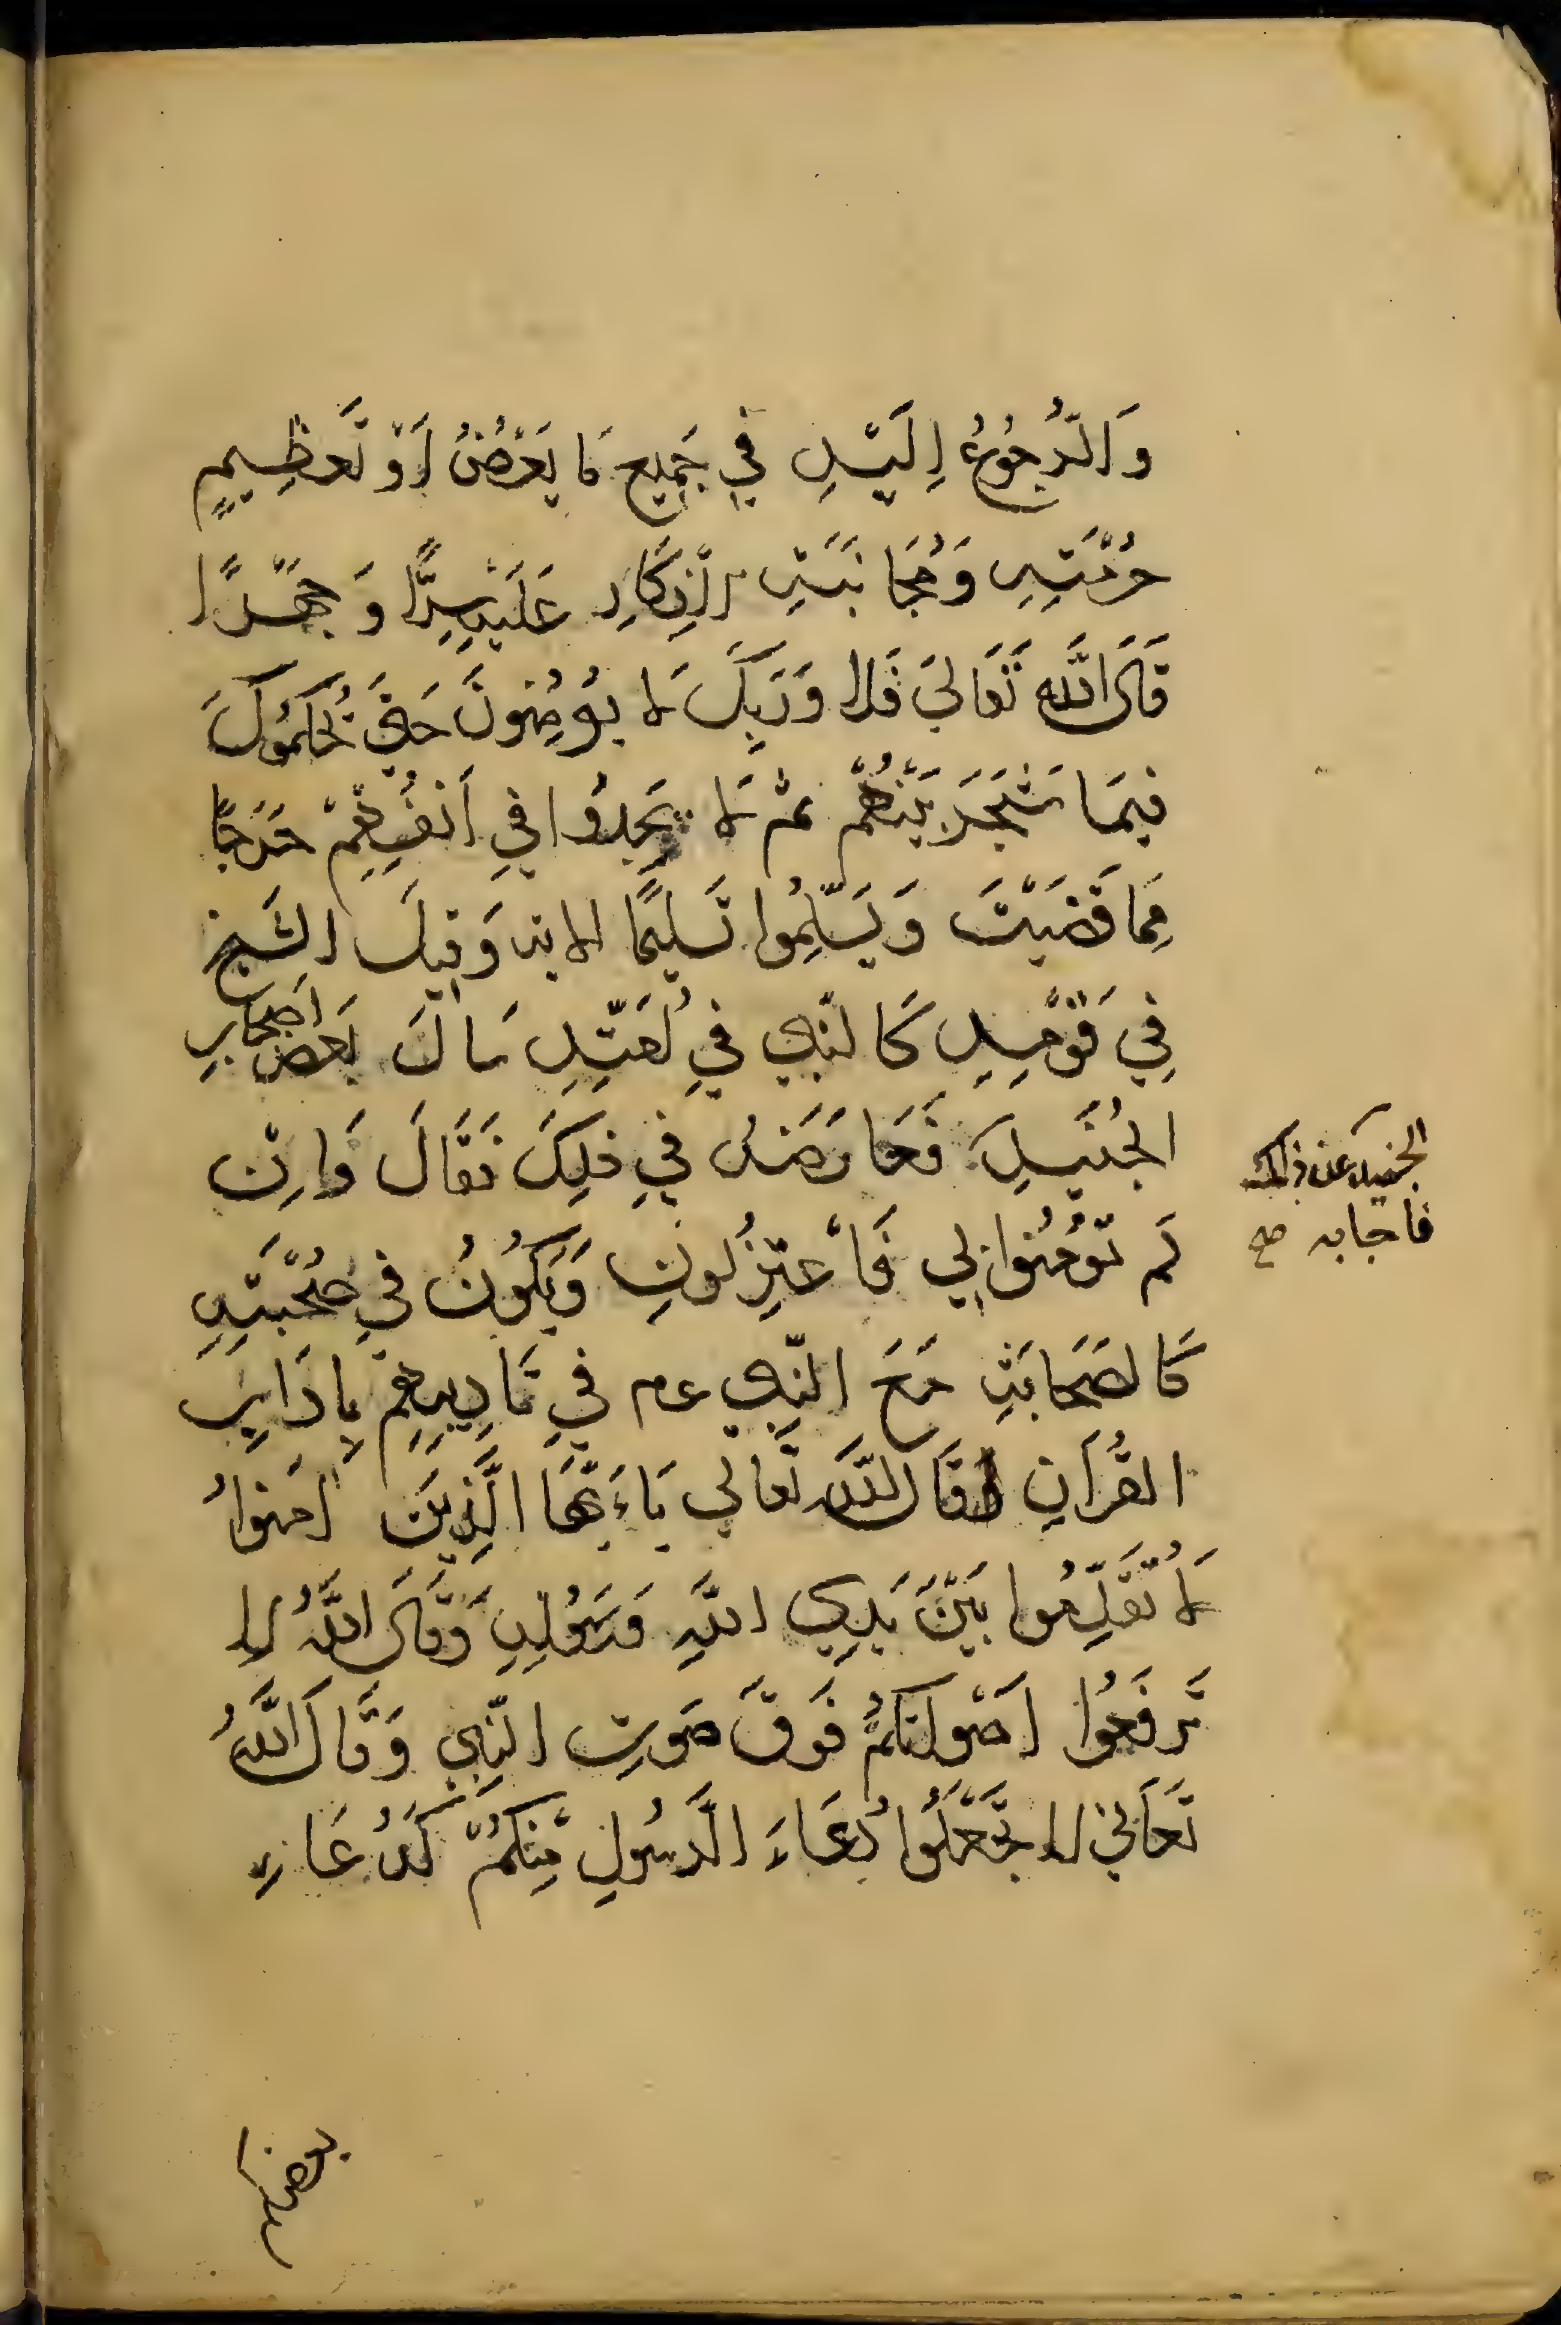 وَالرُّجُوعُ اِلَيْهِ فِي جَمِيعِ مَا يَعْرُضُ اَوْ تَعظِيمِ
حُرْمَتِهِ وَمُجَانَبَتِ الْاِنْكَارِ عَلَيْهِ سِرًّا وَ جَهْرًا
قَالَ اللّٰهُ تَعَالَىَ فَلا وَرَبِّكَ لَا يُؤمِنُونَ حَتَّى يُحَكِّمُوكَ
فيمَا شَجَرَ بَيْنَهُمْ ثم لَا يَجِدُوا فِي اَنفُسِهِمْ حَرَجًا
مِمَا قَضَيْتَ وَيُسَلِّمُوا تَسليمًا الاية وَقيلَ الشَيخ
فِي قَوْمِهِ كَالنّبي فِي اُمَّتِهِ سَاَلَ بَعضُ اَصحَابِ
الجُنَيدِ فَعَارَضَهُ فِي ذلِكَ فَقَالَ فَاِنْ
لَم تُوْمِنُوا لِي فَاْعْتَزِلُونِ وَيَكُونُ فِي صُحْبَتِهِ
كَالصَحَابَةِ مَعَ النّبِي عم فِي تَادِيبِهِمْ بِادَابِ
القُرآنِ قَالَ اللّٰهُ تَعَالى يَاءَيّهَا الَّذِينَ اٰمَنواُ
لَا تُقَدِّمُوا بَيْنَ يَدِي اللّٰهِ وَرَسُولِهِ وَقَالَ اللّٰهُ لا
تَرفَعُوا اَصْوَاتَكُمْ فَوقَ صَوتِ النّبِي وَقَالَ اللّٰهُ
تَعَالَى لا تَجْعَلُوا دُعَاءَ الرَّسُولِ مِنكُمْ كَدُعَاءِ
الجنيد عن ذلك
فاجابه صح
بعضكم